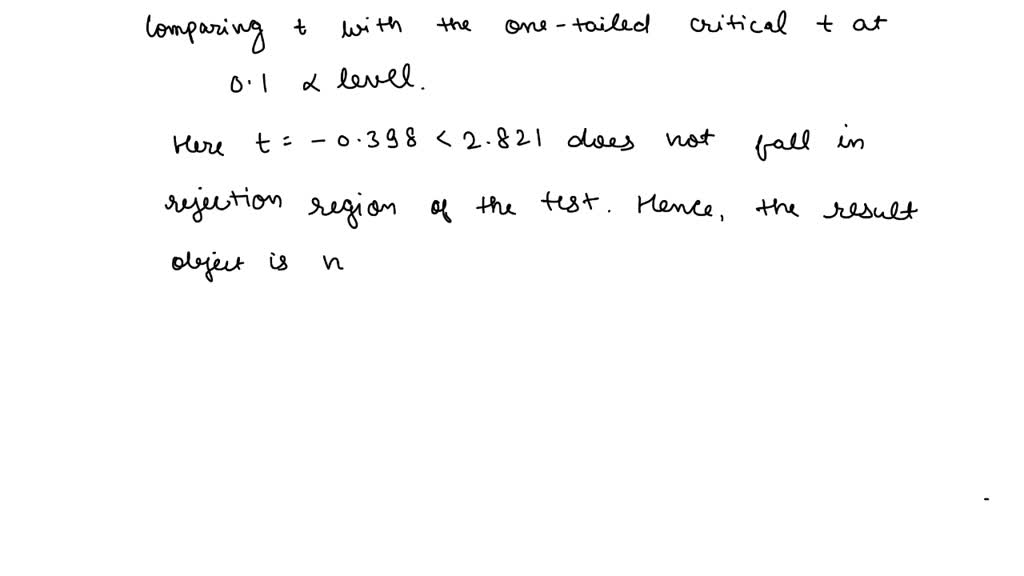 Comparing t with the one-tailed critical t at
0.1 α level.
Here t = -0.398 < 2.821 does not fall in
rejection region of the test. Hence, the result
object is n